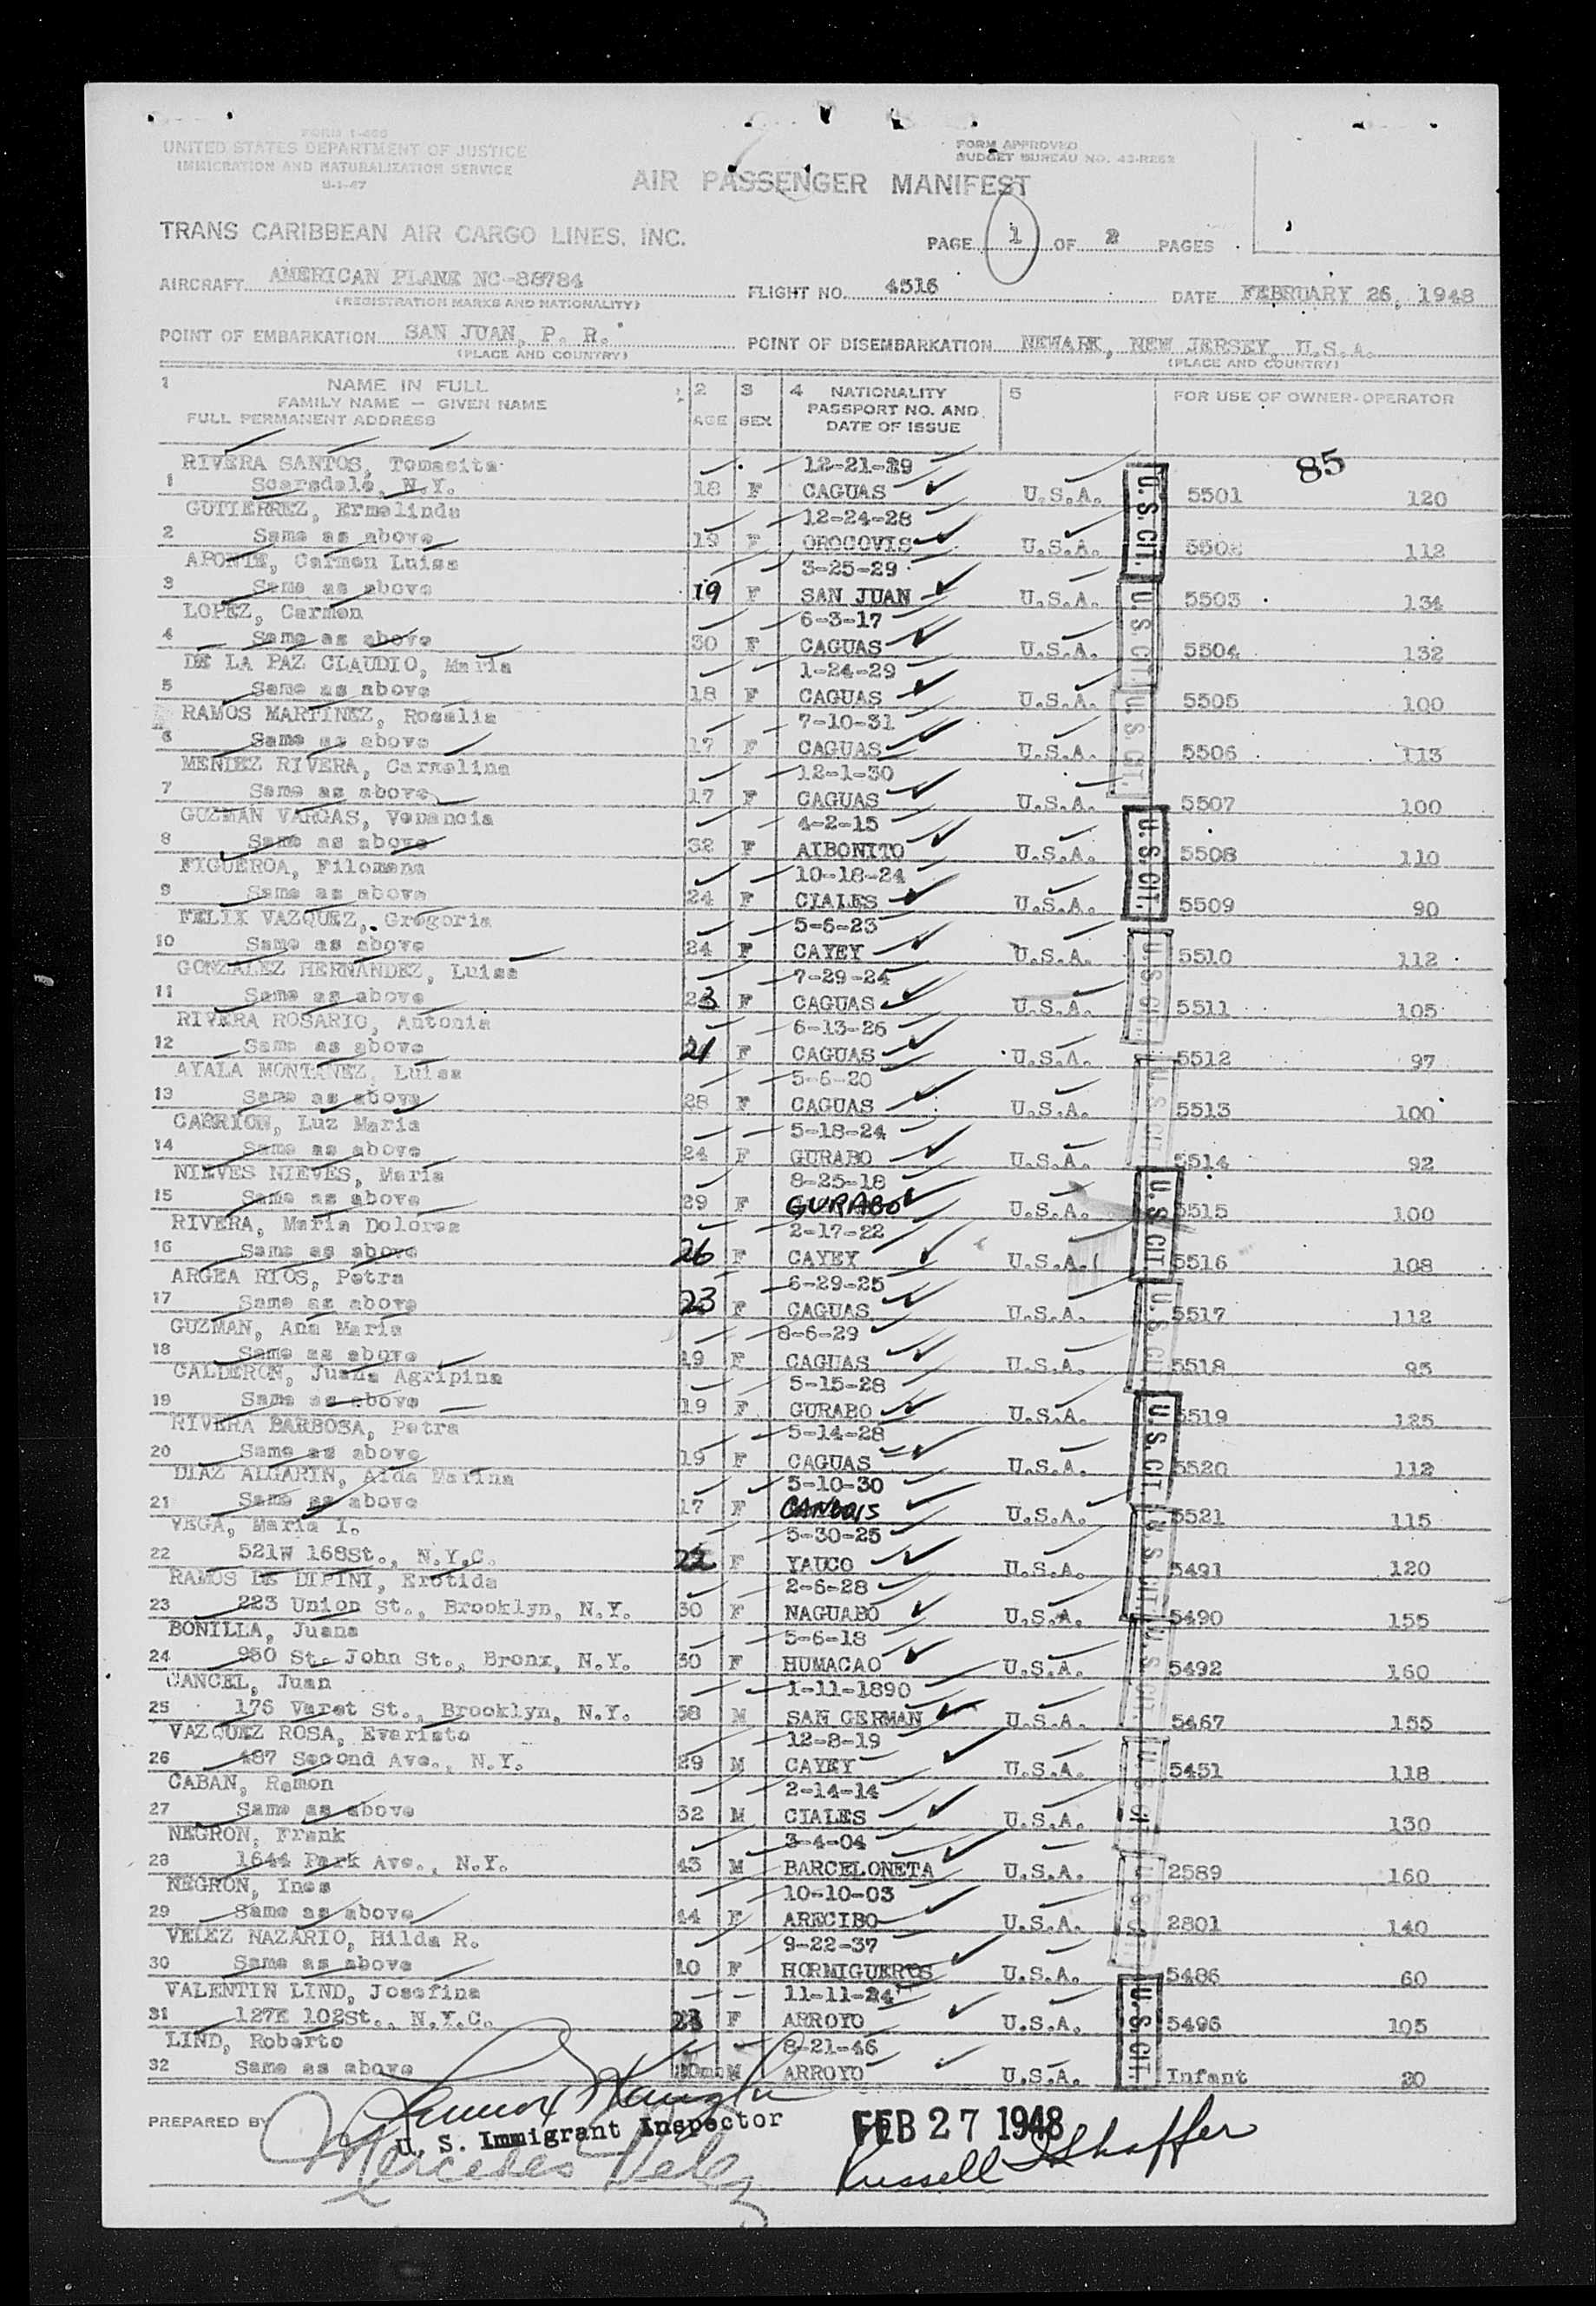 FORM I-466
UNITED STATES DEPARTMENT OF JUSTICE
IMMIGRATION AND NATURALIZATION SERVICE
FORM APPROVED
BUDGET BUREAU NO. 43-R252
AIR PASSENGER MANIFEST
TRANS CARIBBEAN AIR CARGO LINES, INC.
PAGE 1 OF 2 PAGES
AIRCRAFT AMERICAN PLANE NC-88784 FLIGHT NO. 4516 DATE FEBRUARY 26, 1948
(REGISTRATION MARKS AND NATIONALITY)
POINT OF EMBARKATION SAN JUAN, P. R. POINT OF DISEMBARKATION NEWARK, NEW JERSEY, U.S.A.
(PLACE AND COUNTRY) (PLACE AND COUNTRY)
1 NAME IN FULL 2 3 4 NATIONALITY 5 FOR USE OF OWNER-OPERATOR
FAMILY NAME — GIVEN NAME PASSPORT NO. AND
FULL PERMANENT ADDRESS AGE SEX DATE OF ISSUE
85
RIVERA SANTOS, Tomasita 12-21-29
1 Scarsdale, N.Y. 18 F CAGUAS U.S.A. U.S. CIT. 5501 120
GUTIERREZ, Ermelinda 12-24-28
2 Same as above 19 F OROCOVIS U.S.A. 5502 112
APONTE, Carmen Luisa 3-25-29
3 Same as above 19 F SAN JUAN U.S.A. U.S. CIT. 5503 134
LOPEZ, Carmen 6-3-17
4 Same as above 30 F CAGUAS U.S.A. 5504 132
DE LA PAZ CLAUDIO, Maria 1-24-29
5 Same as above 18 F CAGUAS U.S.A. U.S. CIT. 5505 100
RAMOS MARTINEZ, Rosalia 7-10-31
6 Same as above 17 F CAGUAS U.S.A. 5506 113
MENDEZ RIVERA, Carmelina 12-1-30
7 Same as above 17 F CAGUAS U.S.A. 5507 100
GUZMAN VARGAS, Venancia 4-2-15
8 Same as above 32 F AIBONITO U.S.A. U.S. CIT. 5508 110
FIGUEROA, Filomena 10-18-24
9 Same as above 24 F CIALES U.S.A. 5509 90
FELIX VAZQUEZ, Gregoria 5-6-23
10 Same as above 24 F CAYEY U.S.A. 5510 112
GONZALEZ HERNANDEZ, Luisa 7-29-24
11 Same as above 23 F CAGUAS U.S.A. 5511 105
RIVERA ROSARIO, Antonia 6-13-26
12 Same as above 21 F CAGUAS U.S.A. 5512 97
AYALA MONTANEZ, Luisa 5-6-20
13 Same as above 28 F CAGUAS U.S.A. U.S. CIT 5513 100
CARRION, Luz Maria 5-18-24
14 Same as above 24 F GURABO U.S.A. 5514 92
NIEVES NIEVES, Maria 8-25-18
15 Same as above 29 F GURABO U.S.A. U.S. CIT. 5515 100
RIVERA, Maria Dolores 2-17-22
16 Same as above 26 F CAYEY U.S.A. 5516 108
ARGEA RIOS, Petra 6-29-25
17 Same as above 23 F CAGUAS U.S.A. 5517 112
GUZMAN, Ana Maria 8-6-29
18 Same as above 19 F CAGUAS U.S.A. 5518 95
CALDERON, Juana Agripina 5-15-28
19 Same as above 19 F GURABO U.S.A. U.S. CIT. 5519 125
RIVERA BARBOSA, Petra 5-14-28
20 Same as above 19 F CAGUAS U.S.A. 5520 112
DIAZ ALGARIN, Aida Marina 5-10-30
21 Same as above 17 F U.S.A. U.S. CIT. 5521 115
VEGA, Maria I. 5-30-25
22 521W 168St., N.Y.C. 22 F YAUCO U.S.A. 5491 120
RAMOS DE DIPINI, Erotida 2-6-28
23 223 Union St., Brooklyn, N.Y. 30 F NAGUABO U.S.A. 5490 155
BONILLA, Juana 5-6-18
24 950 St. John St., Bronx, N.Y. 30 F HUMACAO U.S.A. 5492 160
CANCEL, Juan 1-11-1890
25 176 Varet St., Brooklyn, N.Y. 58 M SAN GERMAN U.S.A. 5467 155
VAZQUEZ ROSA, Evaristo 12-8-19
26 487 Second Ave., N.Y. 29 M CAYEY U.S.A. 5451 118
CABAN, Ramon 2-14-14
27 Same as above 32 M CIALES U.S.A. 130
NEGRON, Frank 3-4-04
28 1644 Park Ave., N.Y. 43 M BARCELONETA U.S.A. 2589 160
NEGRON, Ines 10-10-03
29 Same as above 44 F ARECIBO U.S.A. 2801 140
VELEZ NAZARIO, Hilda R. 9-22-37
30 Same as above 10 F HORMIGUEROS U.S.A. 5486 60
VALENTIN LIND, Josefina 11-11-24
31 127E 102St., N.Y.C. 23 F ARROYO U.S.A. U.S. CIT. 5496 105
LIND, Roberto 8-21-46
32 Same as above M ARROYO U.S.A. Infant 20
PREPARED BY
U. S. Immigrant Inspector
FEB 27 1948
Mercedes Velez
Russell Shaffer